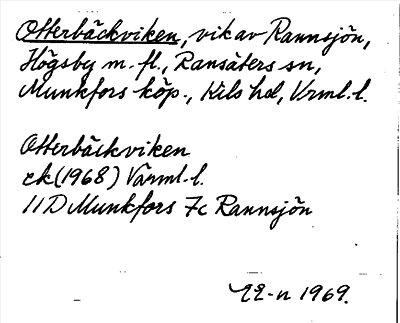 Otterbäckviken, vik av Rannsjön,
Högsby m. fl., Ransäters sn,
Munkfors köp., Kils hd, Vrml. l.
Otterbäckviken
ek (1968) Värml. l.
11D Munkfors 7c Rannsjön
1969.